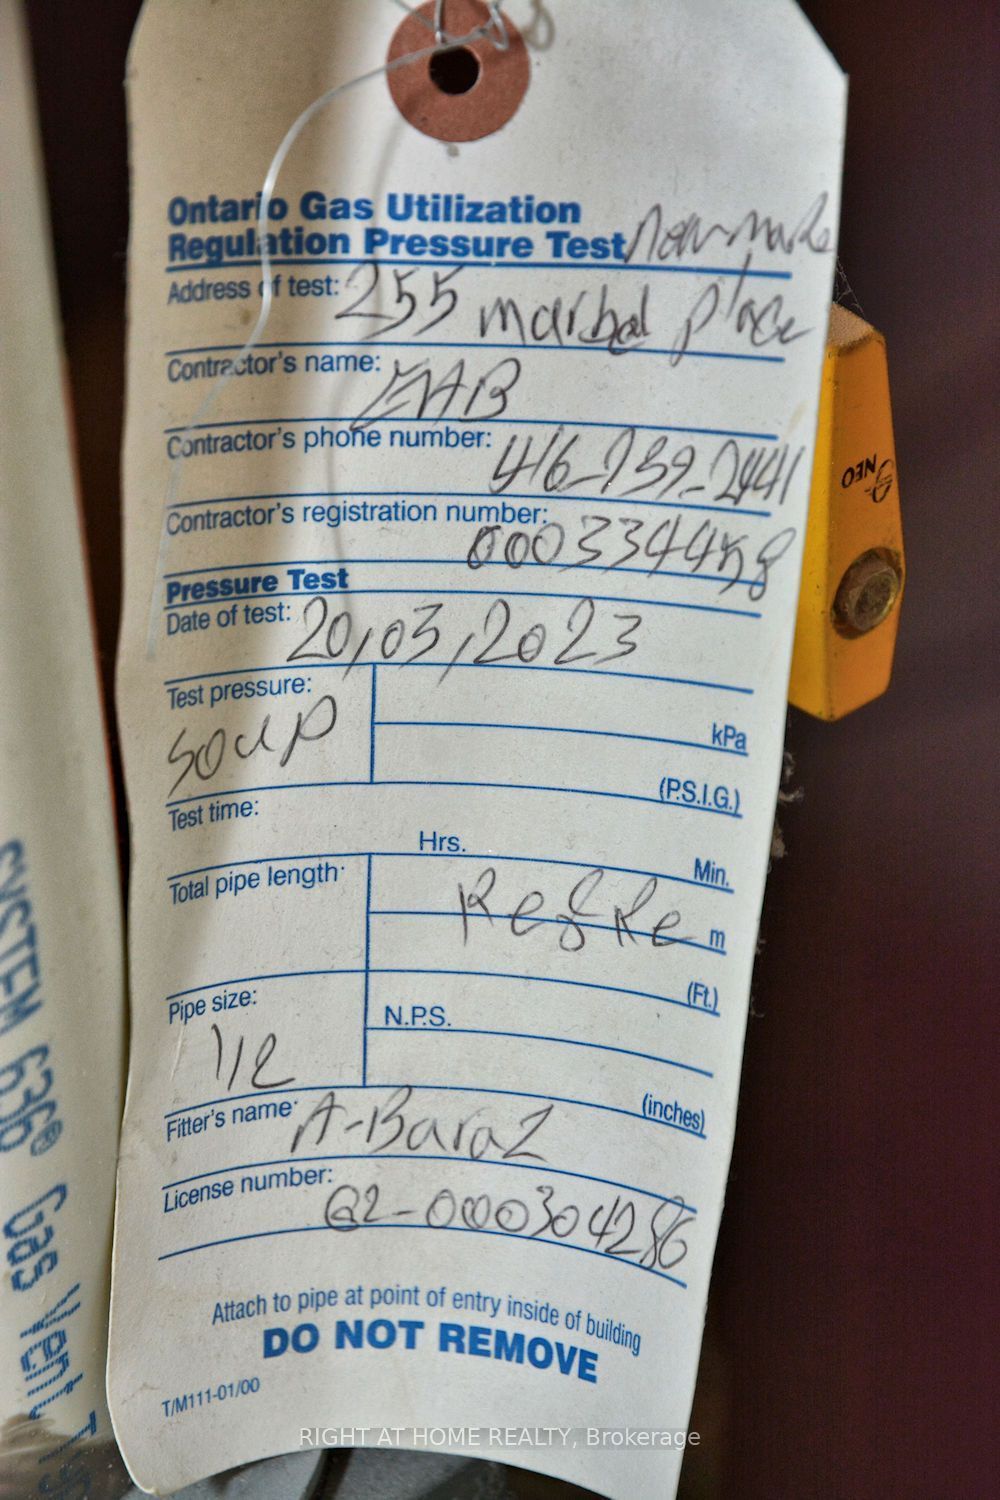 Ontario Gas Utilization
Regulation Pressure Test
Address of test: 255 marbal place
Contractor's name: EAB
Contractor's phone number: 416-739-2441
Contractor's registration number: 000334458
Pressure Test
Date of test: 20,03,2023
Test pressure: soup
kPa
(P.S.I.G.)
Test time:
Hrs. Min.
Total pipe length:
m
(Ft.)
Pipe size: 1/2
N.P.S.
(inches)
Fitter's name: A-Baraz
License number: G2-000304286
Attach to pipe at point of entry inside of building
DO NOT REMOVE
T/M111-01/00
NEO
SYSTEM 636® Gas Vent
RIGHT AT HOME REALTY, Brokerage